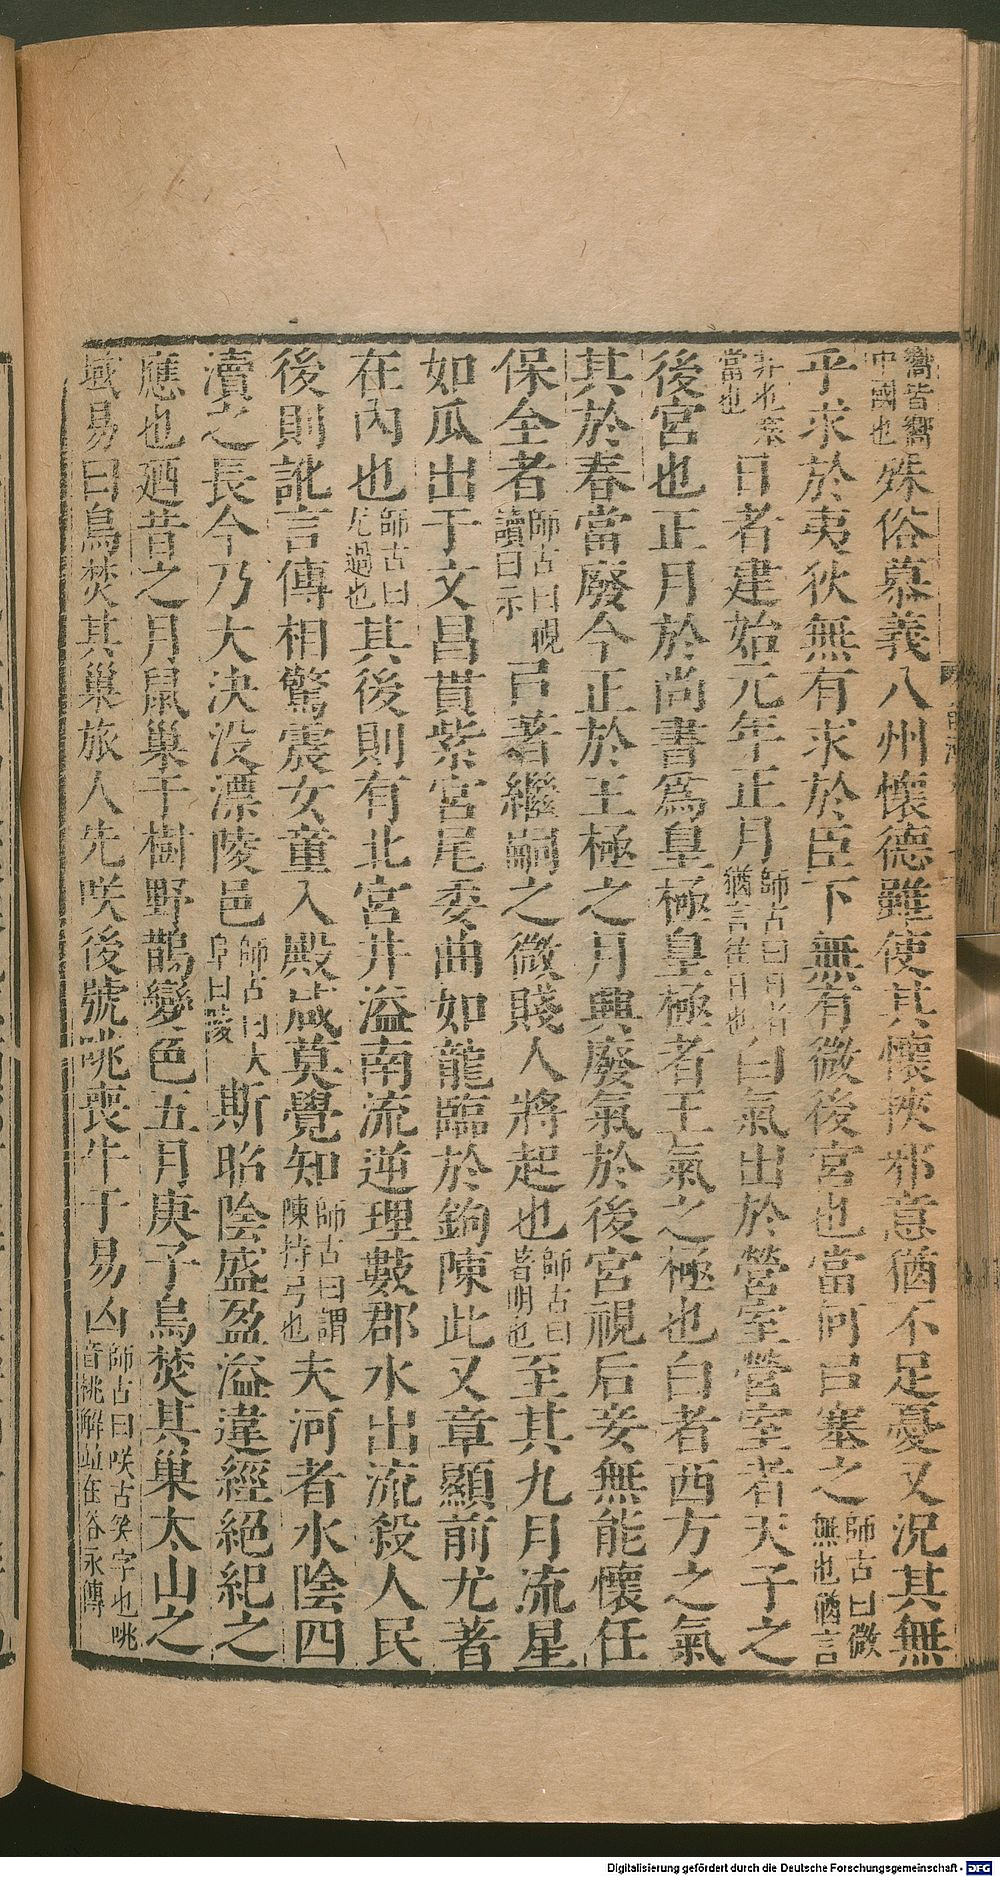 嚮皆嚮中國也殊俗慕義八州懷德雖使其懷挾邪意猶不足憂又況其無
乎求於夷狄無有求於臣下無有微後宮也當何㠯塞之師古曰微無也猶言
非也塞當也日者建始元年正月師古曰日者猶言往日也白氣出於營室營室者天子之
後宮也正月於尚書爲皇極皇極者王氣之極也白者西方之氣
其於春當廢今正於王極之月興廢氣於後宮視后妾無能懷任
保全者師古曰視讀曰示㠯著繼嗣之微賤人將起也師古曰著明也至其九月流星
如瓜出于文昌貫紫宮尾委曲如龍臨於鉤陳此又章顯前尤著
在內也師古曰尤過也其後則有北宮井溢南流逆理數郡水出流殺人民
後則訛言傳相驚震女童入殿咸莫覺知師古曰謂陳持弓也夫河者水陰四
瀆之長今乃大決没漂陵邑師古曰大阜曰陵斯昭陰盛盈溢違經絕紀之
應也廼昔之月鼠巢于樹野鵲變色五月庚子鳥焚其巢太山之
域易曰鳥焚其巢旅人先咲後號咷喪牛于易凶師古曰咲古笑字也咷音桃解並在谷永傳
Digitalisierung gefördert durch die Deutsche Forschungsgemeinschaft - DFG